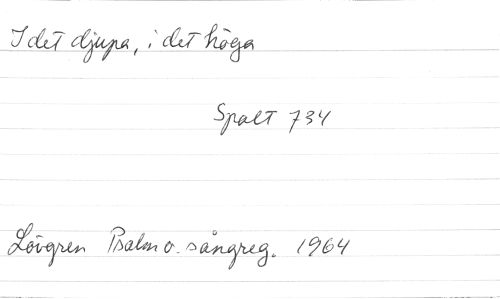 I det djupa, i det höga
Spalt 734
Lövgren Psalm o. sångreg. 1964